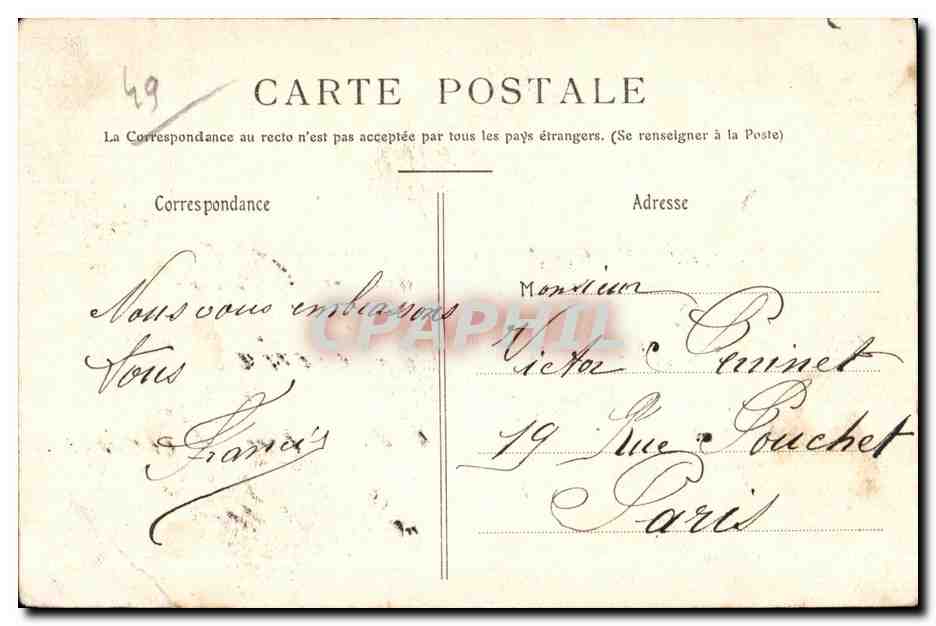 49
CARTE POSTALE
La Correspondance au recto n'est pas acceptée par tous les pays étrangers. (Se renseigner à la Poste)
Correspondance
Nous vous embrassons
Tous
Francis
Adresse
Monsieur
Victor
19 Rue Pouchet
Paris
CPAPHIL